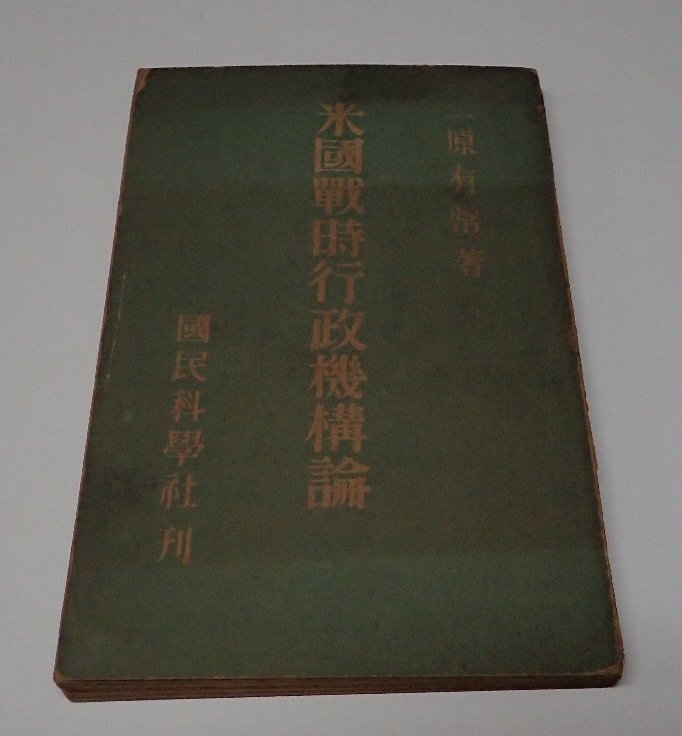 一原有常著
米國戰時行政機構論
國民科學社刊